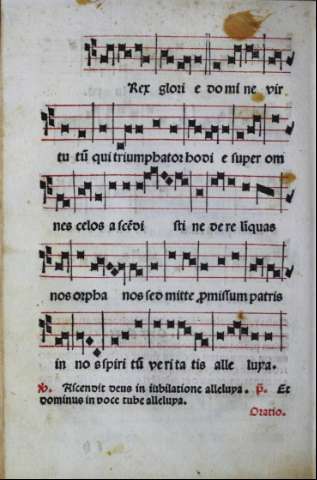 Rex glori e domi ne vir
tu tū qui triumphator hodi e super om
nes celos a scēdi sti ne de re liquas
nos orpha nos sed mitte ꝓmissum patris
in no s spiri tū veri ta tis alle luya.
℣. Ascendit deus in iubilatione alleluya. ℟. Et
dominus in voce tube alleluya.
Oratio.